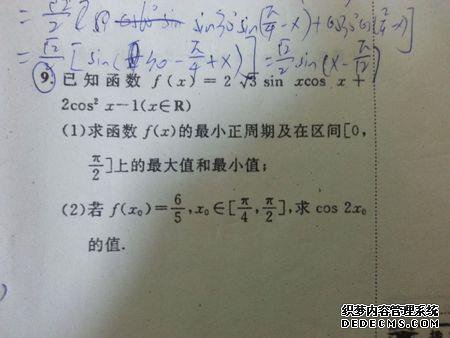 = √2/2 [sin30° sin(π/4-x)+cos30°cos(π/4-x)]
= √2/2 [sin(30-π/4+x)] = √2/2 sin(x-π/12)
9. 已知函数 f(x)=2√3 sin xcos x+
2cos² x-1(x∈R)
(1)求函数 f(x)的最小正周期及在区间[0,
π/2]上的最大值和最小值;
(2)若 f(x₀)=6/5,x₀∈[π/4,π/2],求 cos 2x₀
的值.
织梦内容管理系统
DEDECMS.COM